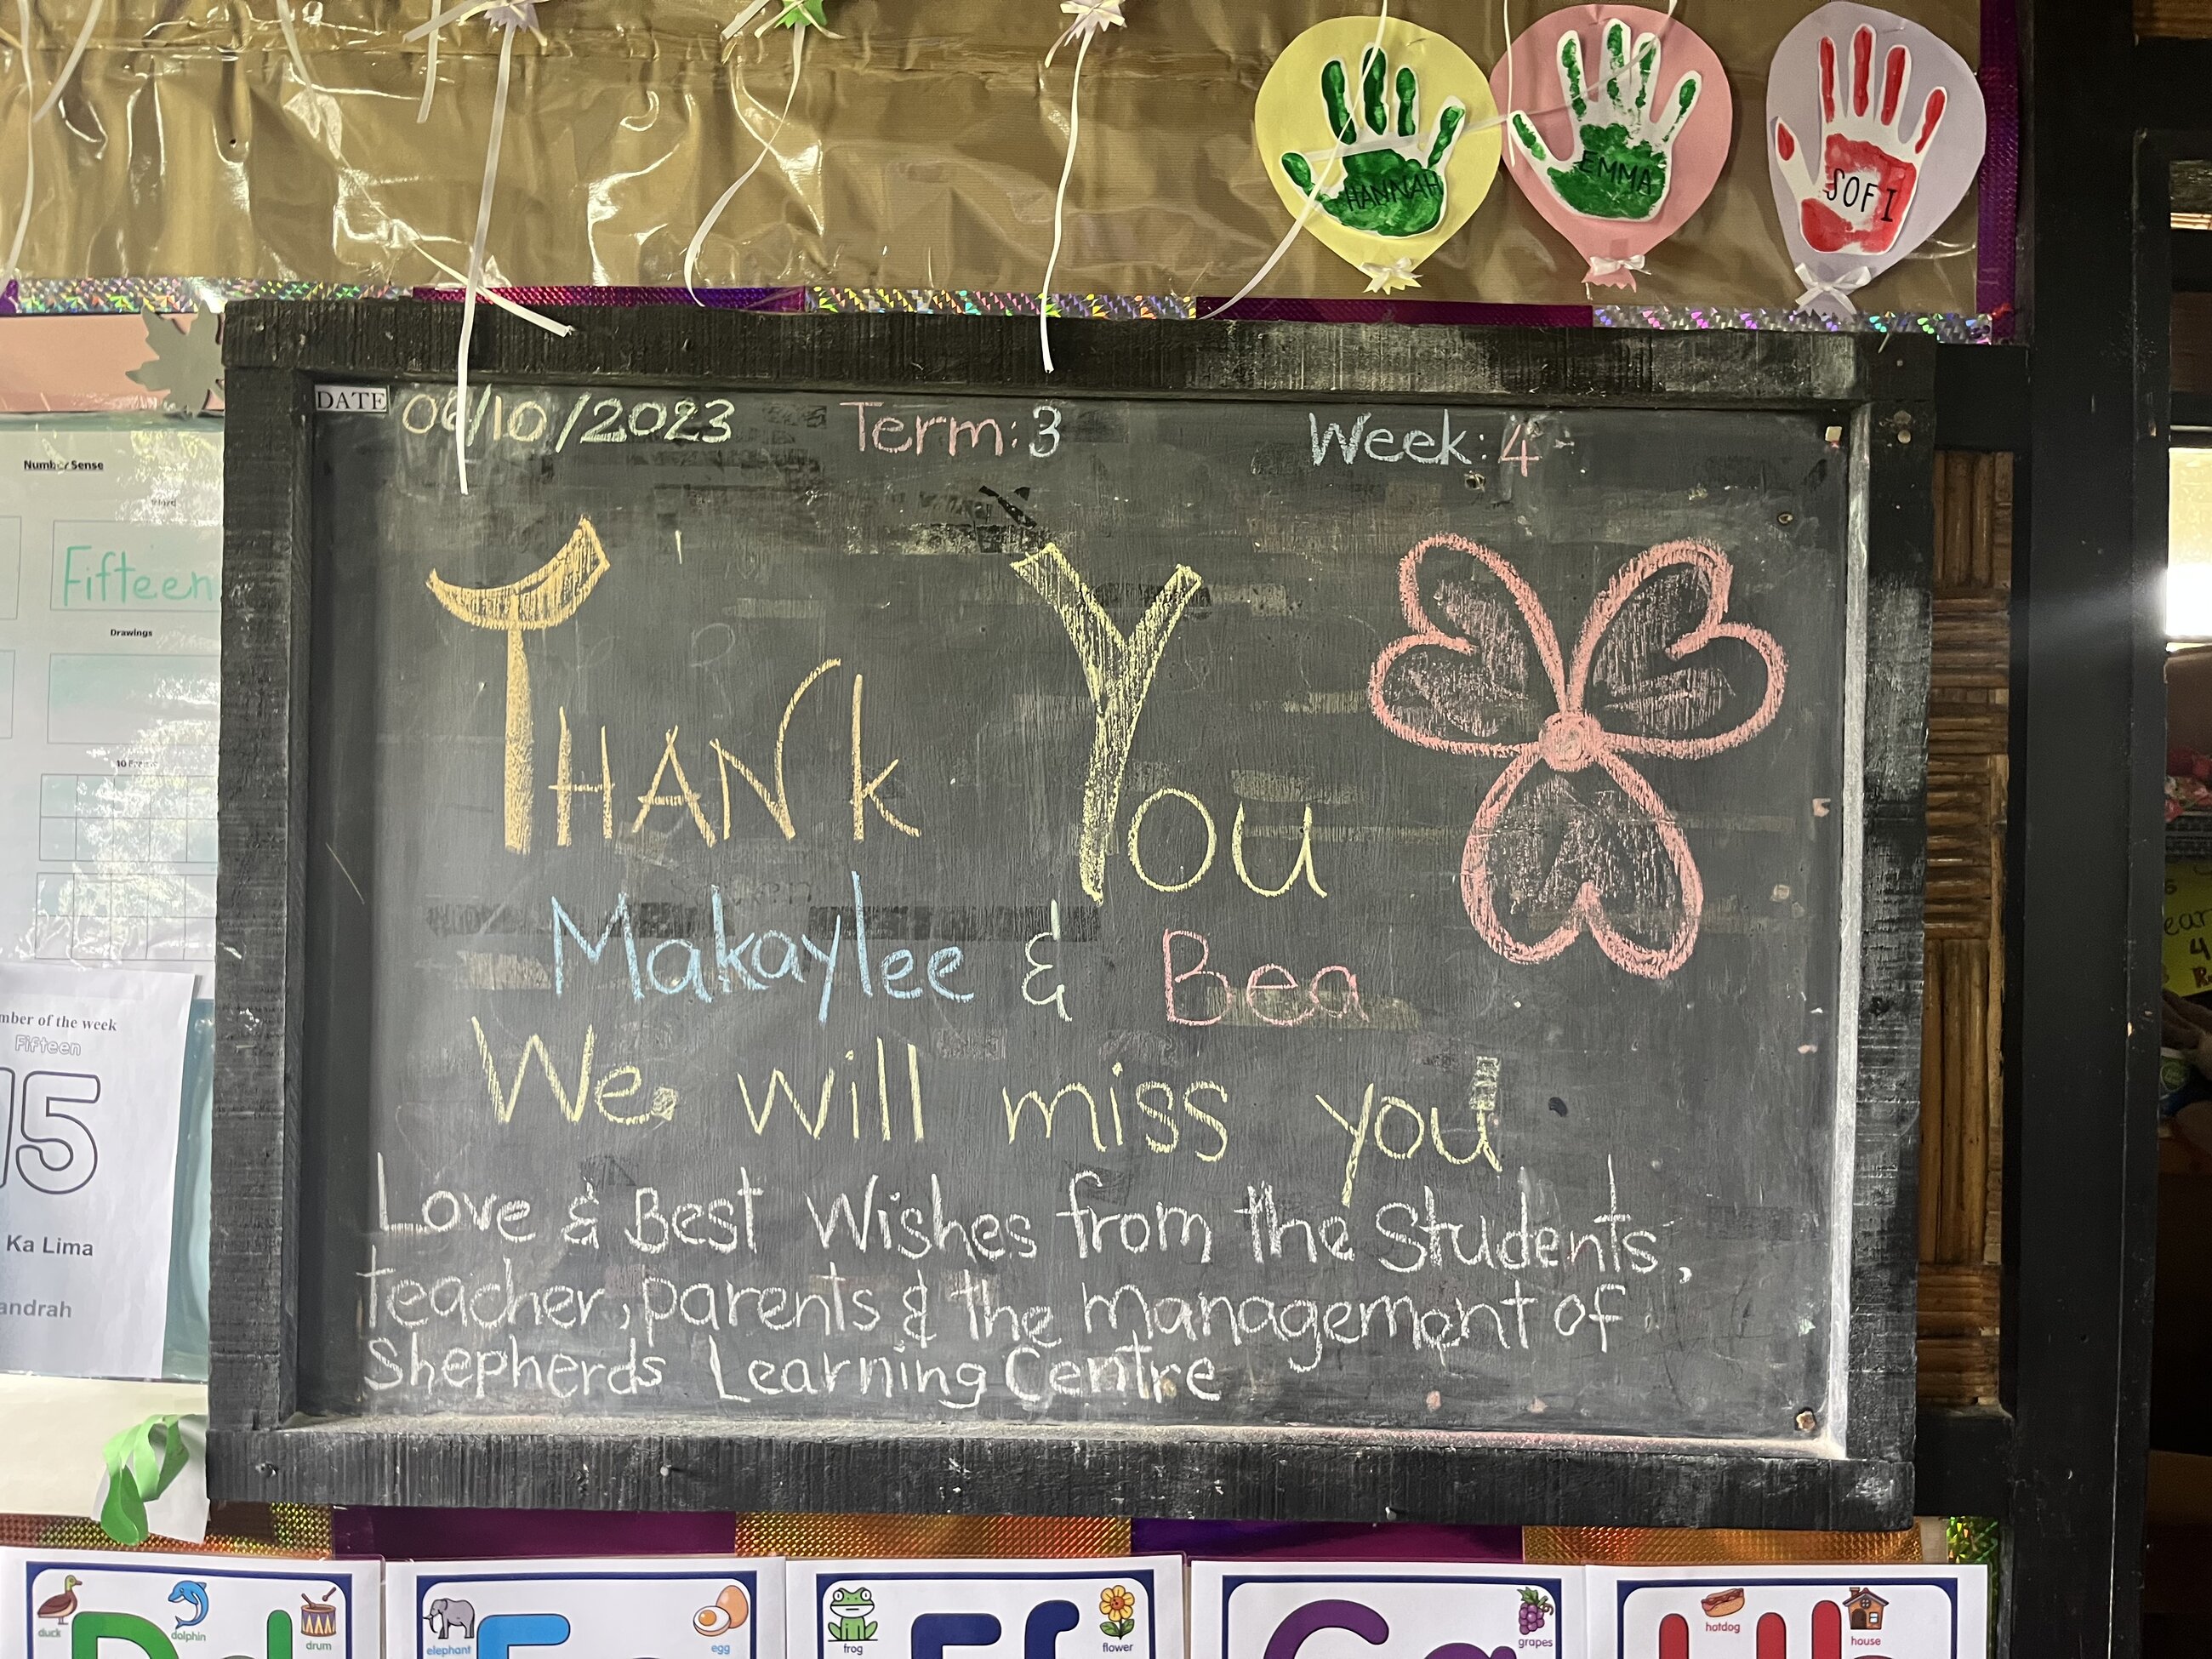 HANNAH
EMMA
SOFI
DATE 06/10/2023 Term: 3 Week: 4
THANk You
Makaylee & Bea
We will miss you
Love & Best Wishes from the Students,
teacher, parents & the management of
Shepherds Learning Centre
Number Sense
Word
Fifteen
Drawings
mber of the week
Fifteen
15
Ka Lima
andrah
ear
4
duck
dolphin
drum
elephant
egg
frog
flower
grapes
hotdog
house